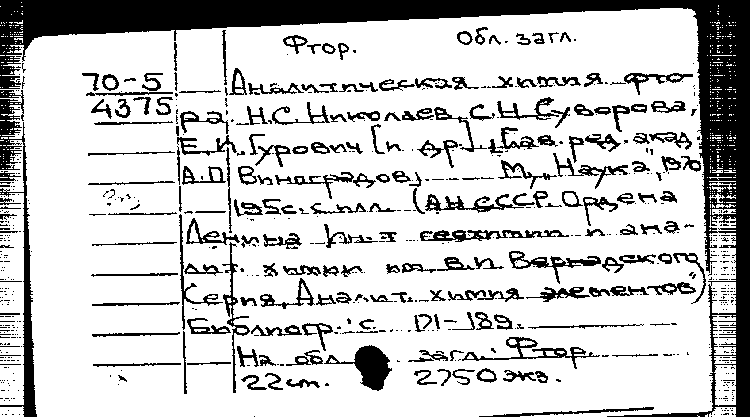 Фтор. Обл. загл.
70-5 Аналитическая химия фто-
4375 ра. Н.С. Николаев, С.Н. Суворова,
Е.И. Гурович [и др.] [Глав. ред. акад.
А.П. Виноградов]. М., "Наука", 1970
195 с. с илл. (АН СССР. Ордена
Ленина Ин-т геохимии и ана-
лит. химии им. В.И. Вернадского.
Серия "Аналит. химия элементов")
Библиогр.: с. 171-189.
На обл. загл.: Фтор.
22 см. 2750 экз.